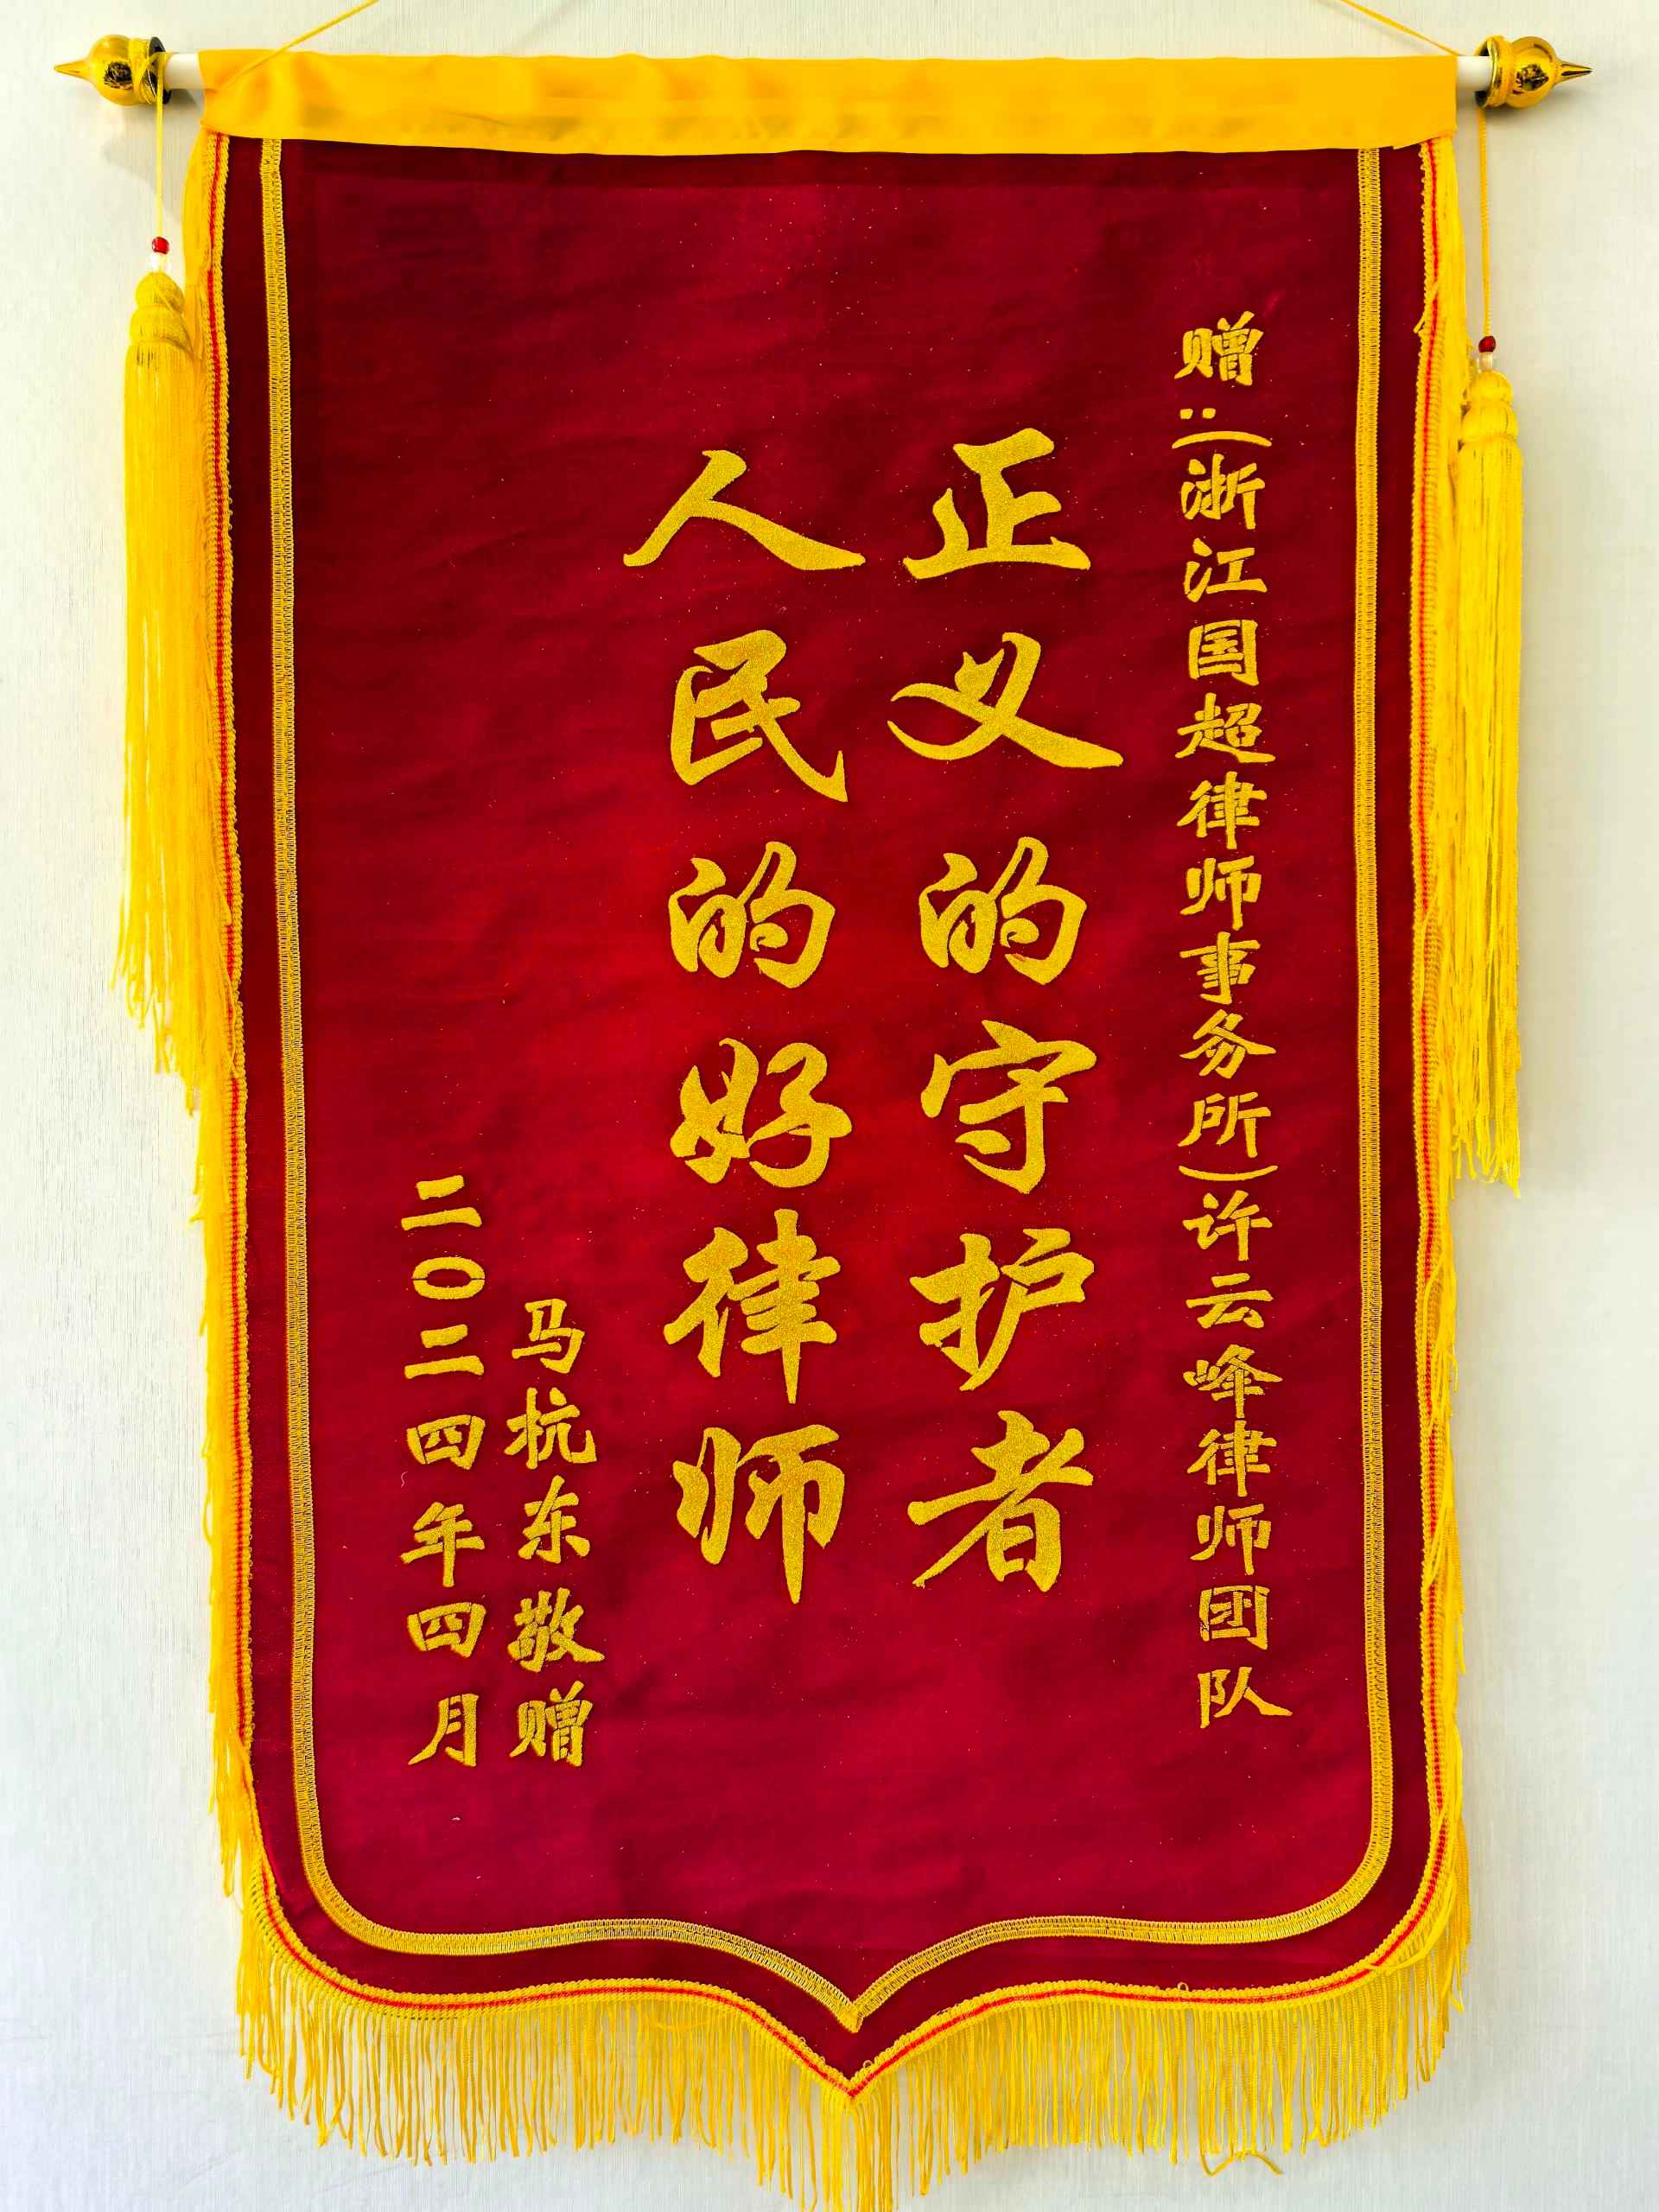 赠:(浙江国超律师事务所)许云峰律师团队
正义的守护者
人民的好律师
马杭东敬赠
二〇二四年四月